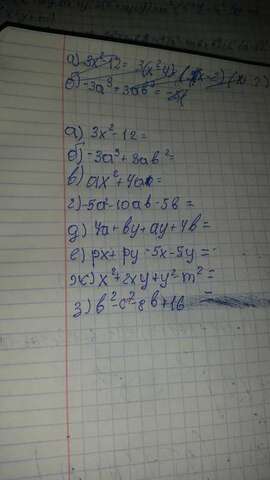 а) 3x²-12= 3(x²-4)
б) -3a³+3ab²=
а) 3x²-12=
б) -3a³+3ab²=
в) ax²+4a =
г) -5a²-10ab-5b =
д) 4a+by+ay+4b=
е) px+py-5x-5y=
ж) x²+2xy+y²-m²=
з) b²-c²-8b+16 =